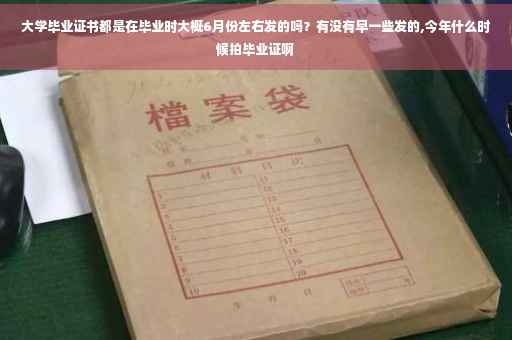 大学毕业证书都是在毕业时大概6月份左右发的吗？有没有早一些发的,今年什么时
候拍毕业证啊
檔案袋
材料目次
1
2
3
4
5
6
7
8
9
10
11
12
13
14
15
16
17
18
19
20
年 月 日